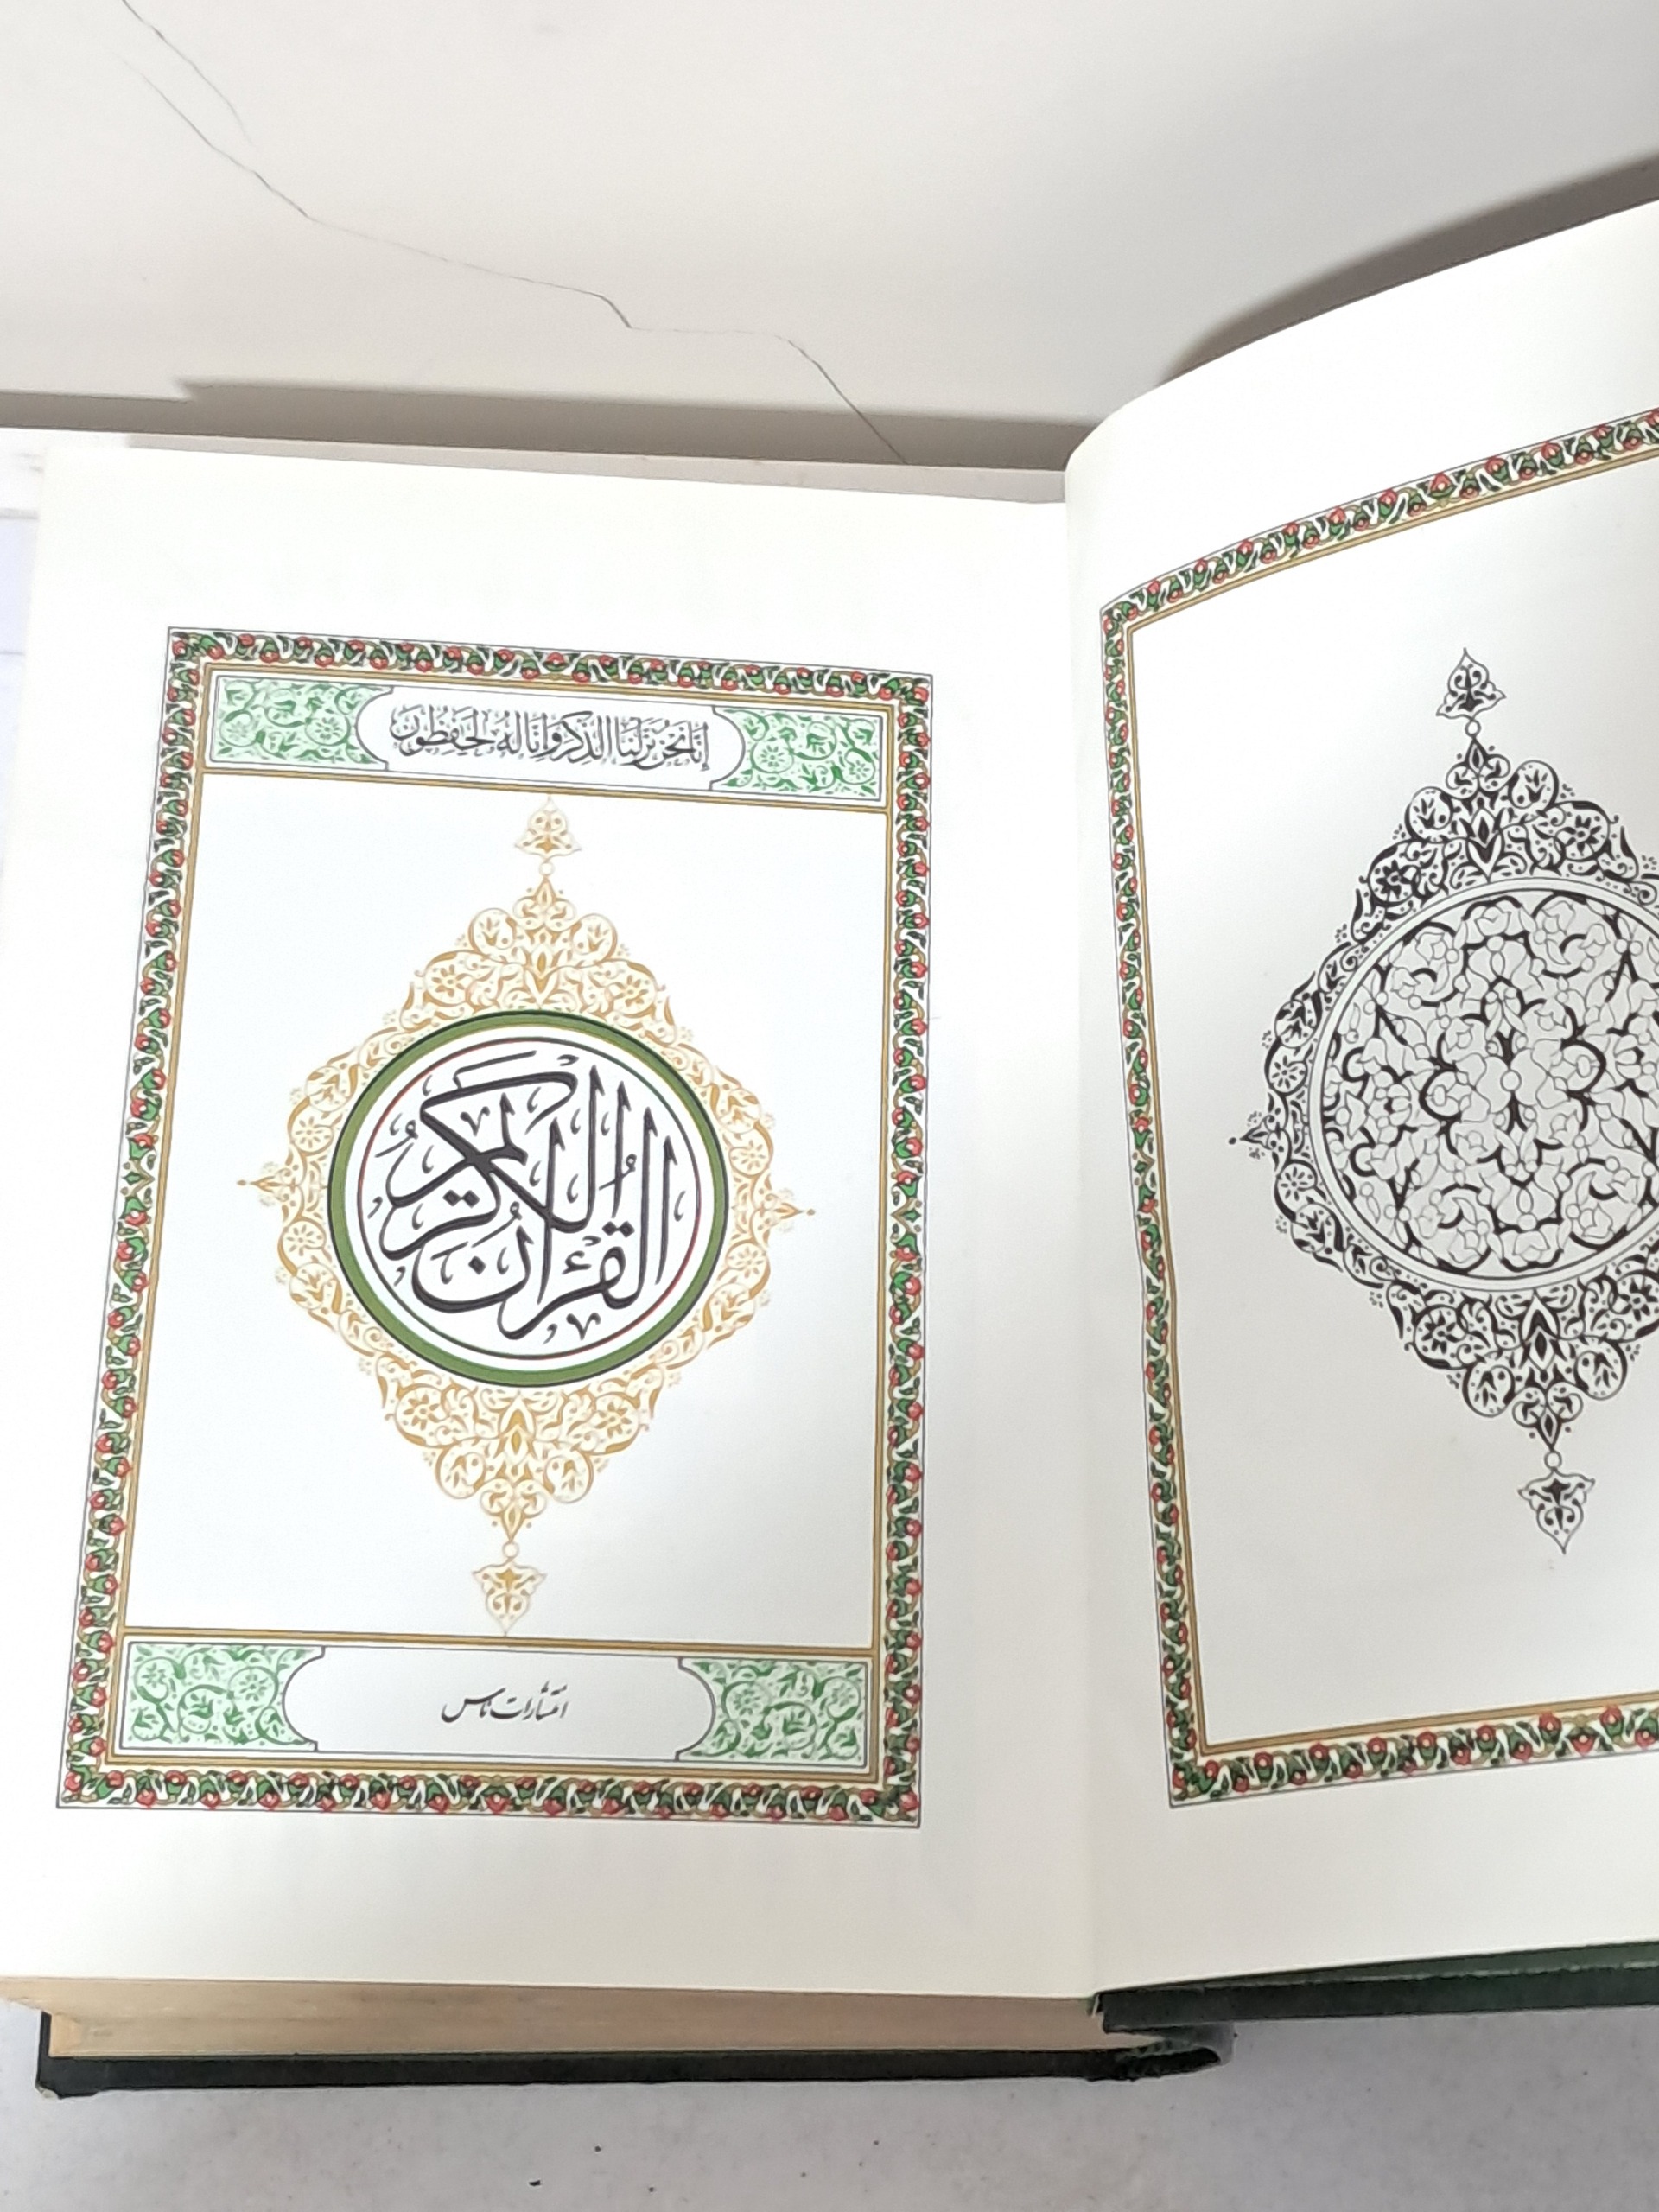 إنا نحن نزلنا الذكر وإنا له لحفظون
القرآن الكريم
انتشارات ناس